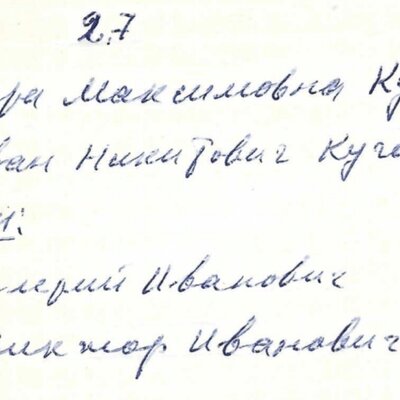 2.7
ра Максимовна Ку
ван Никитович Куча
и:
лерий Иванович
иктор Иванович